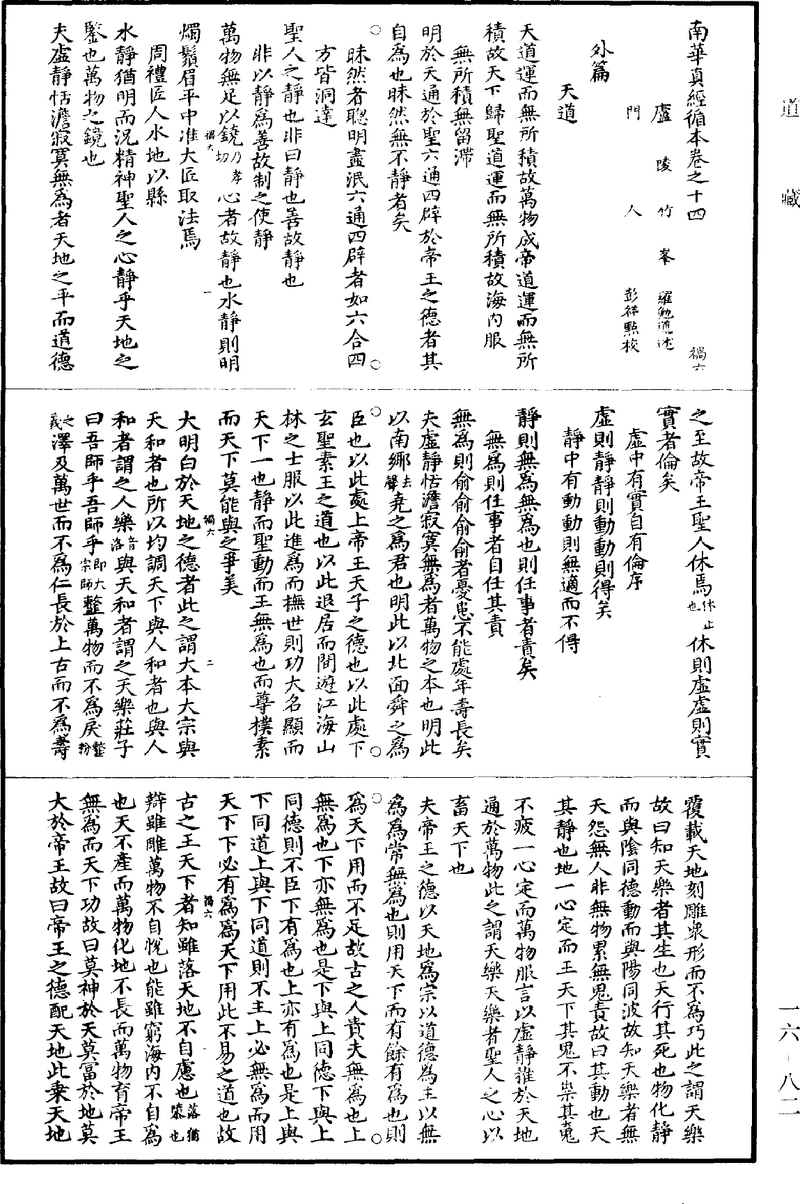 道藏
南華真經循本卷之十四 禍六
廬陵竹峯羅勉道述
門人彭祥點校
外篇
天道
天道運而無所積故萬物成帝道運而無所
積故天下歸聖道運而無所積故海內服
無所積無留滯
明於天通於聖六通四辟於帝王之德者其
自為也昧然無不靜者矣
昧然者聰明盡泯六通四辟者如六合四
方皆洞達
聖人之靜也非曰靜也善故靜也
非以靜為善故制之使靜
萬物無足以鐃乃孝切心者故靜也水靜則明
燭鬚眉平中准大匠取法焉
周禮匠人水地以縣
水靜猶明而況精神聖人之心靜乎天地之
鑒也萬物之鏡也
夫虛靜恬澹寂寞無為者天地之平而道德
禍六 一
之至故帝王聖人休焉休止也休則虛虛則實
實者倫矣
虛中有實自有倫序
虛則靜靜則動動則得矣
靜中有動動則無適而不得
靜則無為無為也則任事者責矣
無為則任事者自任其責
無為則俞俞俞俞者憂患不能處年壽長矣
夫虛靜恬澹寂寞無為者萬物之本也明此
以南鄉去聲堯之為君也明此以北面舜之為
臣也以此處上帝王天子之德也以此處下
玄聖素王之道也以此退居而閒遊江海山
林之士服以此進為而撫世則功大名顯而
天下一也靜而聖動而王無為也而尊樸素
而天下莫能與之爭美
大明白於天地之德者此之謂大本大宗與
天和者也所以均調天下與人和者也與人
和者謂之人樂音洛與天和者謂之天樂莊子
曰吾師乎吾師乎即大宗師𩐎萬物而不為戾𩐎粉
之義澤及萬世而不為仁長於上古而不為壽
禍六 二
覆載天地刻雕衆形而不為巧此之謂天樂
故曰知天樂者其生也天行其死也物化靜
而與陰同德動而與陽同波故知天樂者無
天怨無人非無物累無鬼責故曰其動也天
其靜也地一心定而王天下其鬼不祟其魂
不疲一心定而萬物服言以虛靜推於天地
通於萬物此之謂天樂天樂者聖人之心以
畜天下也
夫帝王之德以天地為宗以道德為主以無
為為常無為也則用天下而有餘有為也則
為天下用而不足故古之人貴夫無為也上
無為也下亦無為也是下與上同德下與上
同德則不臣下有為也上亦有為也是上與
下同道上與下同道則不主上必無為而用
天下下必有為為天下用此不易之道也故
古之王天下者知雖落天地不自慮也落猶絡也
辯雖雕萬物不自悅也能雖窮海內不自為
也天不產而萬物化地不長而萬物育帝王
無為而天下功故曰莫神於天莫富於地莫
大於帝王故曰帝王之德配天地此乘天地
禍六
一六·八二